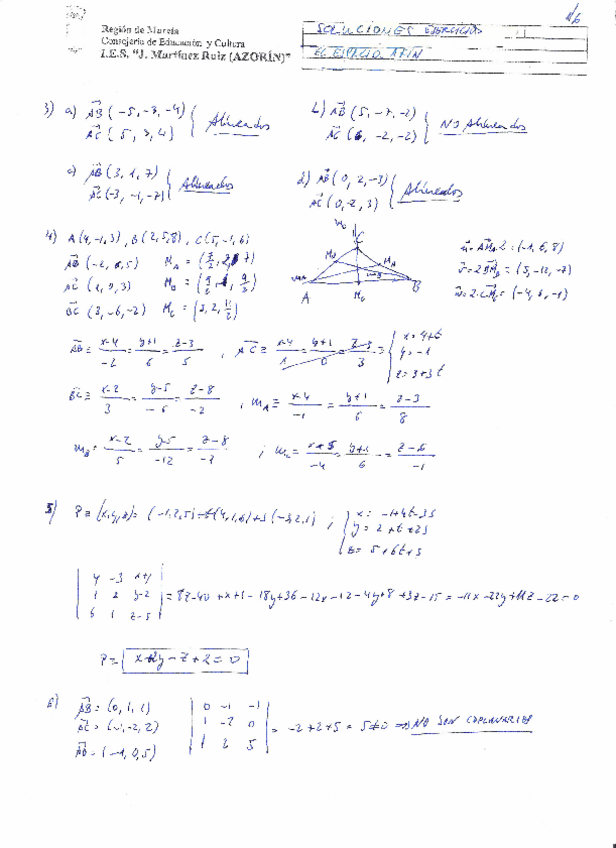 1/6
Región de Murcia
Consejería de Educación y Cultura
I.E.S. "J. Martínez Ruiz (AZORÍN)"
SOLUCIONES EJERCICIOS
EL ESPACIO AFIN
3) a) AB (-5, -3, -4) AC (5, 3, 4) Alineados
b) AB (5, -7, -2) AC (6, -2, -2) NO Alineados
c) AB (3, 1, 7) AC (-3, -1, -7) Alineados
d) AB (0, 2, -3) AC (0, -2, 3) Alineados
4) A(4, -1, 3), B(2, 5, 8), C(5, -1, 6)
AB (-2, 6, 5)
AC (1, 0, 3)
BC (3, -6, -2)
A B C
u = 2 AM_A = (-1, 6, 8)
v = 2 BM_B = (5, -12, -7)
w = 2 CM_C = (-4, 6, -1)
AB ≡ (x-4)/-2 = (y+1)/6 = (z-3)/5 , AC ≡ (x-4)/1 = (y+1)/0 = (z-3)/3 → x = 4+t y = -1 z = 3+3t
BC ≡ (x-2)/3 = (y-5)/-6 = (z-8)/-2 , m_A ≡ (x-4)/-1 = (y+1)/6 = (z-3)/8
m_B ≡ (x-2)/5 = (y-5)/-12 = (z-8)/-7 ; m_C ≡ (x-5)/-4 = (y+1)/6 = (z-6)/-1
5) P ≡ (x, y, z) = (-1, 2, 5) + t(4, 1, 6) + s(-3, 2, 1) ; x = -1+4t-3s y = 2+t+2s z = 5+6t+s
4 -3 x+1
1 2 y-2
6 1 z-5
= 8z-40+x+1-18y+36-12x-12-4y+8+3z-15 = -11x-22y+11z-22 = 0
P ≡ x+2y-z+2 = 0
6) AB = (0, 1, 1)
AC = (-1, -2, 2)
AD = (-1, 0, 5)
0 -1 -1
1 -2 0
1 2 5
= -2+2+5 = 5 ≠ 0 ⇒ NO SON COPLANARIOS